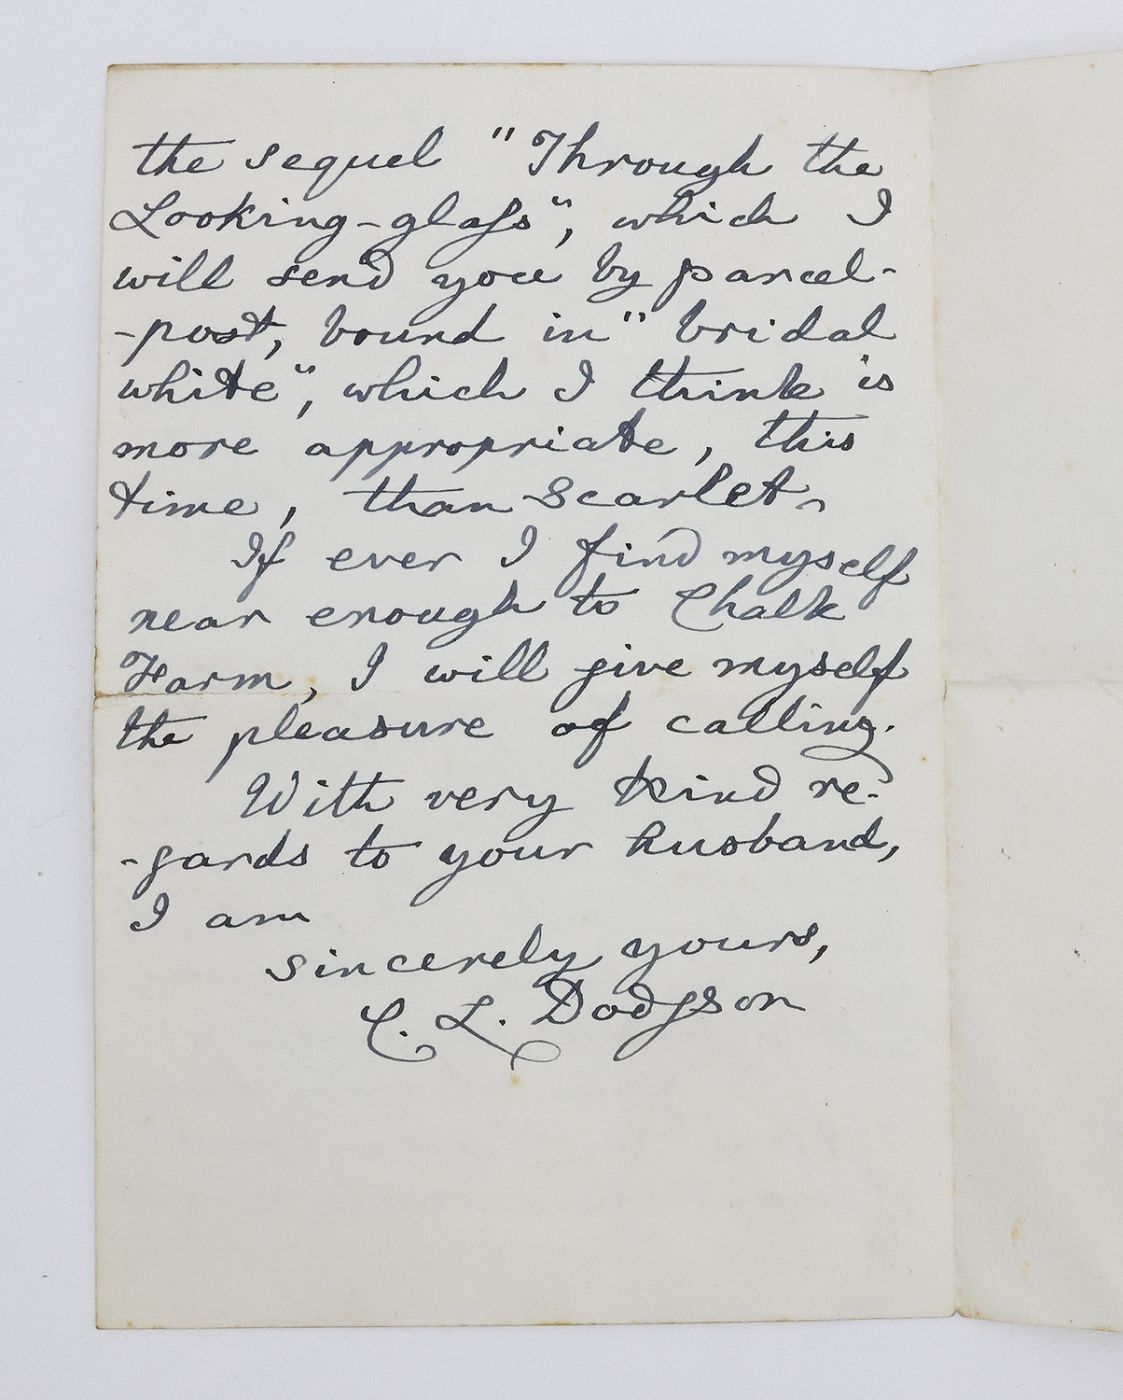 the sequel "Through the
Looking-glaſs", which I
will send you by parcel-
-post, bound in "bridal
white", which I think is
more appropriate, this
time, than scarlet.
If ever I find myself
near enough to Chalk
Farm, I will give myself
the pleasure of calling.
With very kind re-
-gards to your husband,
I am
sincerely yours,
C. L. Dodgson